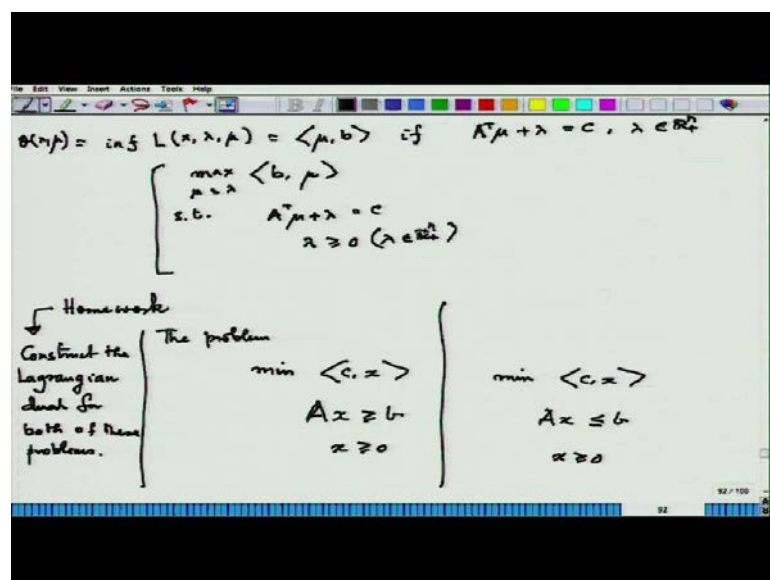 File Edit View Insert Actions Tools Help
θ(λ,μ) = inf L(x, λ, μ) = <μ, b> if Aᵀμ + λ = c, λ ∈ ℝⁿ₊
max <b, μ>
μ, λ
s.t. Aᵀμ + λ = c
λ ≥ 0 (λ ∈ ℝⁿ₊)
Homework
Construct the
Lagrangian
dual for
both of these
problems.
The problem
min <c, x>
Ax ≥ b
x ≥ 0
min <c, x>
Ax ≤ b
x ≥ 0
92 / 100
92